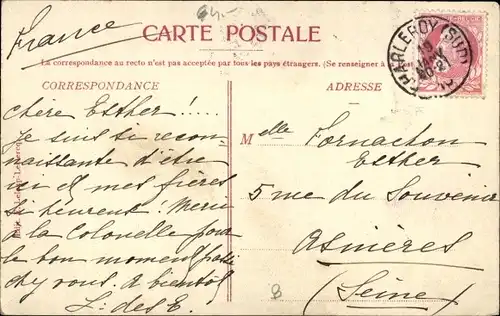 France
64.-
CARTE POSTALE
La correspondance au recto n'est pas acceptée par tous les pays étrangers. (Se renseigner à
CORRESPONDANCE
ADRESSE
CHARLEROY (SUD)
chère Esther!....
Je suis si recon-
naissante d'être
ici & mes frères
si heureux! Merci
à la Colonelle pour
le bon moment passé
chez vous. A bientôt
L. des E.
Melle Fornachon
Esther
5 rue du Souvenir
Asnières
(Seine)
8